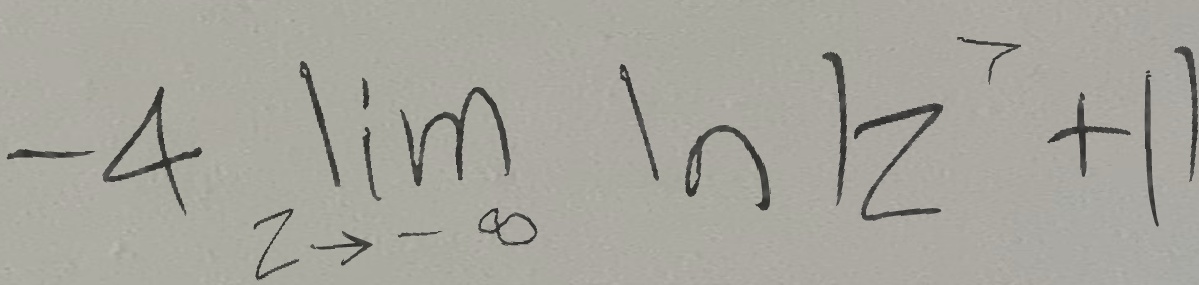 -4 lim ln |z⁷ + 1|
z → -∞